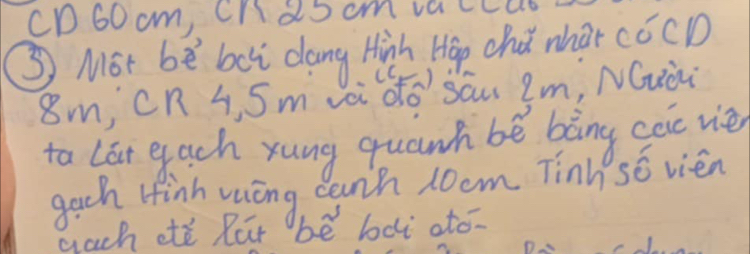 CD 60cm, CR 25cm và
③ Một bể bơi dạng Hình Hộp chữ nhật có CD
8m, CR 4,5m và độ (cc) sâu 2m, Người
ta Lát gạch xung quanh bể bằng các viên
gạch Hình vuông cạnh 10cm Tính số viên
gạch để lát bể bơi đó-